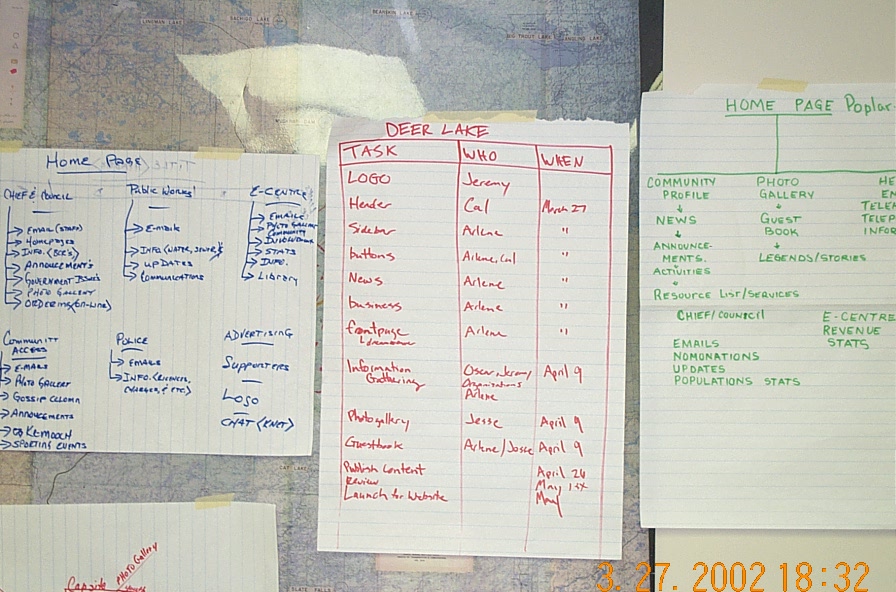 LINGMAN LAKE
SACHIGO LAKE
BEARSKIN LAKE
BIG TROUT LAKE
Home Page
CHIEF & COUNCIL
EMAIL (STAFF)
HOMEPAGES
INFO.
ANNOUNCEMENTS
GOVERNMENT ISSUES
PHOTO GALLERY
ORDERING (ON-LINE)
Public Works
E-MAIL
INFO (WATER, SEWER)
UPDATES
COMMUNICATIONS
E-CENTRE
EMAILS
PHOTO GALLERY
COMMUNITY
STATS
INFO.
LIBRARY
COMMUNITY
ACCESS
E-MAILS
PHOTO GALLERY
GOSSIP COLUMN
ANNOUNCEMENTS
SPORTING EVENTS
POLICE
EMAILS
ADVERTISING
SUPPORTERS
LOGO
CHAT (KNET)
DEER LAKE
TASK WHO WHEN
LOGO Jeremy
Header Cal March 27
Sidebar Arlene "
buttons Arlene, Cal "
News Arlene "
business Arlene "
frontpage Arlene "
Information Oscar, Jeremy April 9
Gathering Organizations
Arlene
Photogallery Jesse April 9
Guestbook Arlene/Jesse April 9
Publish Content
Review
Launch for Website May
HOME PAGE Poplar
COMMUNITY
PROFILE
NEWS
ANNOUNCE-
MENTS.
ACTIVITIES
RESOURCE LIST/SERVICES
PHOTO
GALLERY
GUEST
BOOK
LEGENDS/STORIES
HE
EM
TELE
TELEP
INFOR
CHIEF/COUNCIL
EMAILS
NOMONATIONS
UPDATES
POPULATIONS STATS
E-CENTRE
REVENUE
STATS
CAT LAKE
PHOTO Gallery
SLATE FALLS
3. 27. 2002 18:32